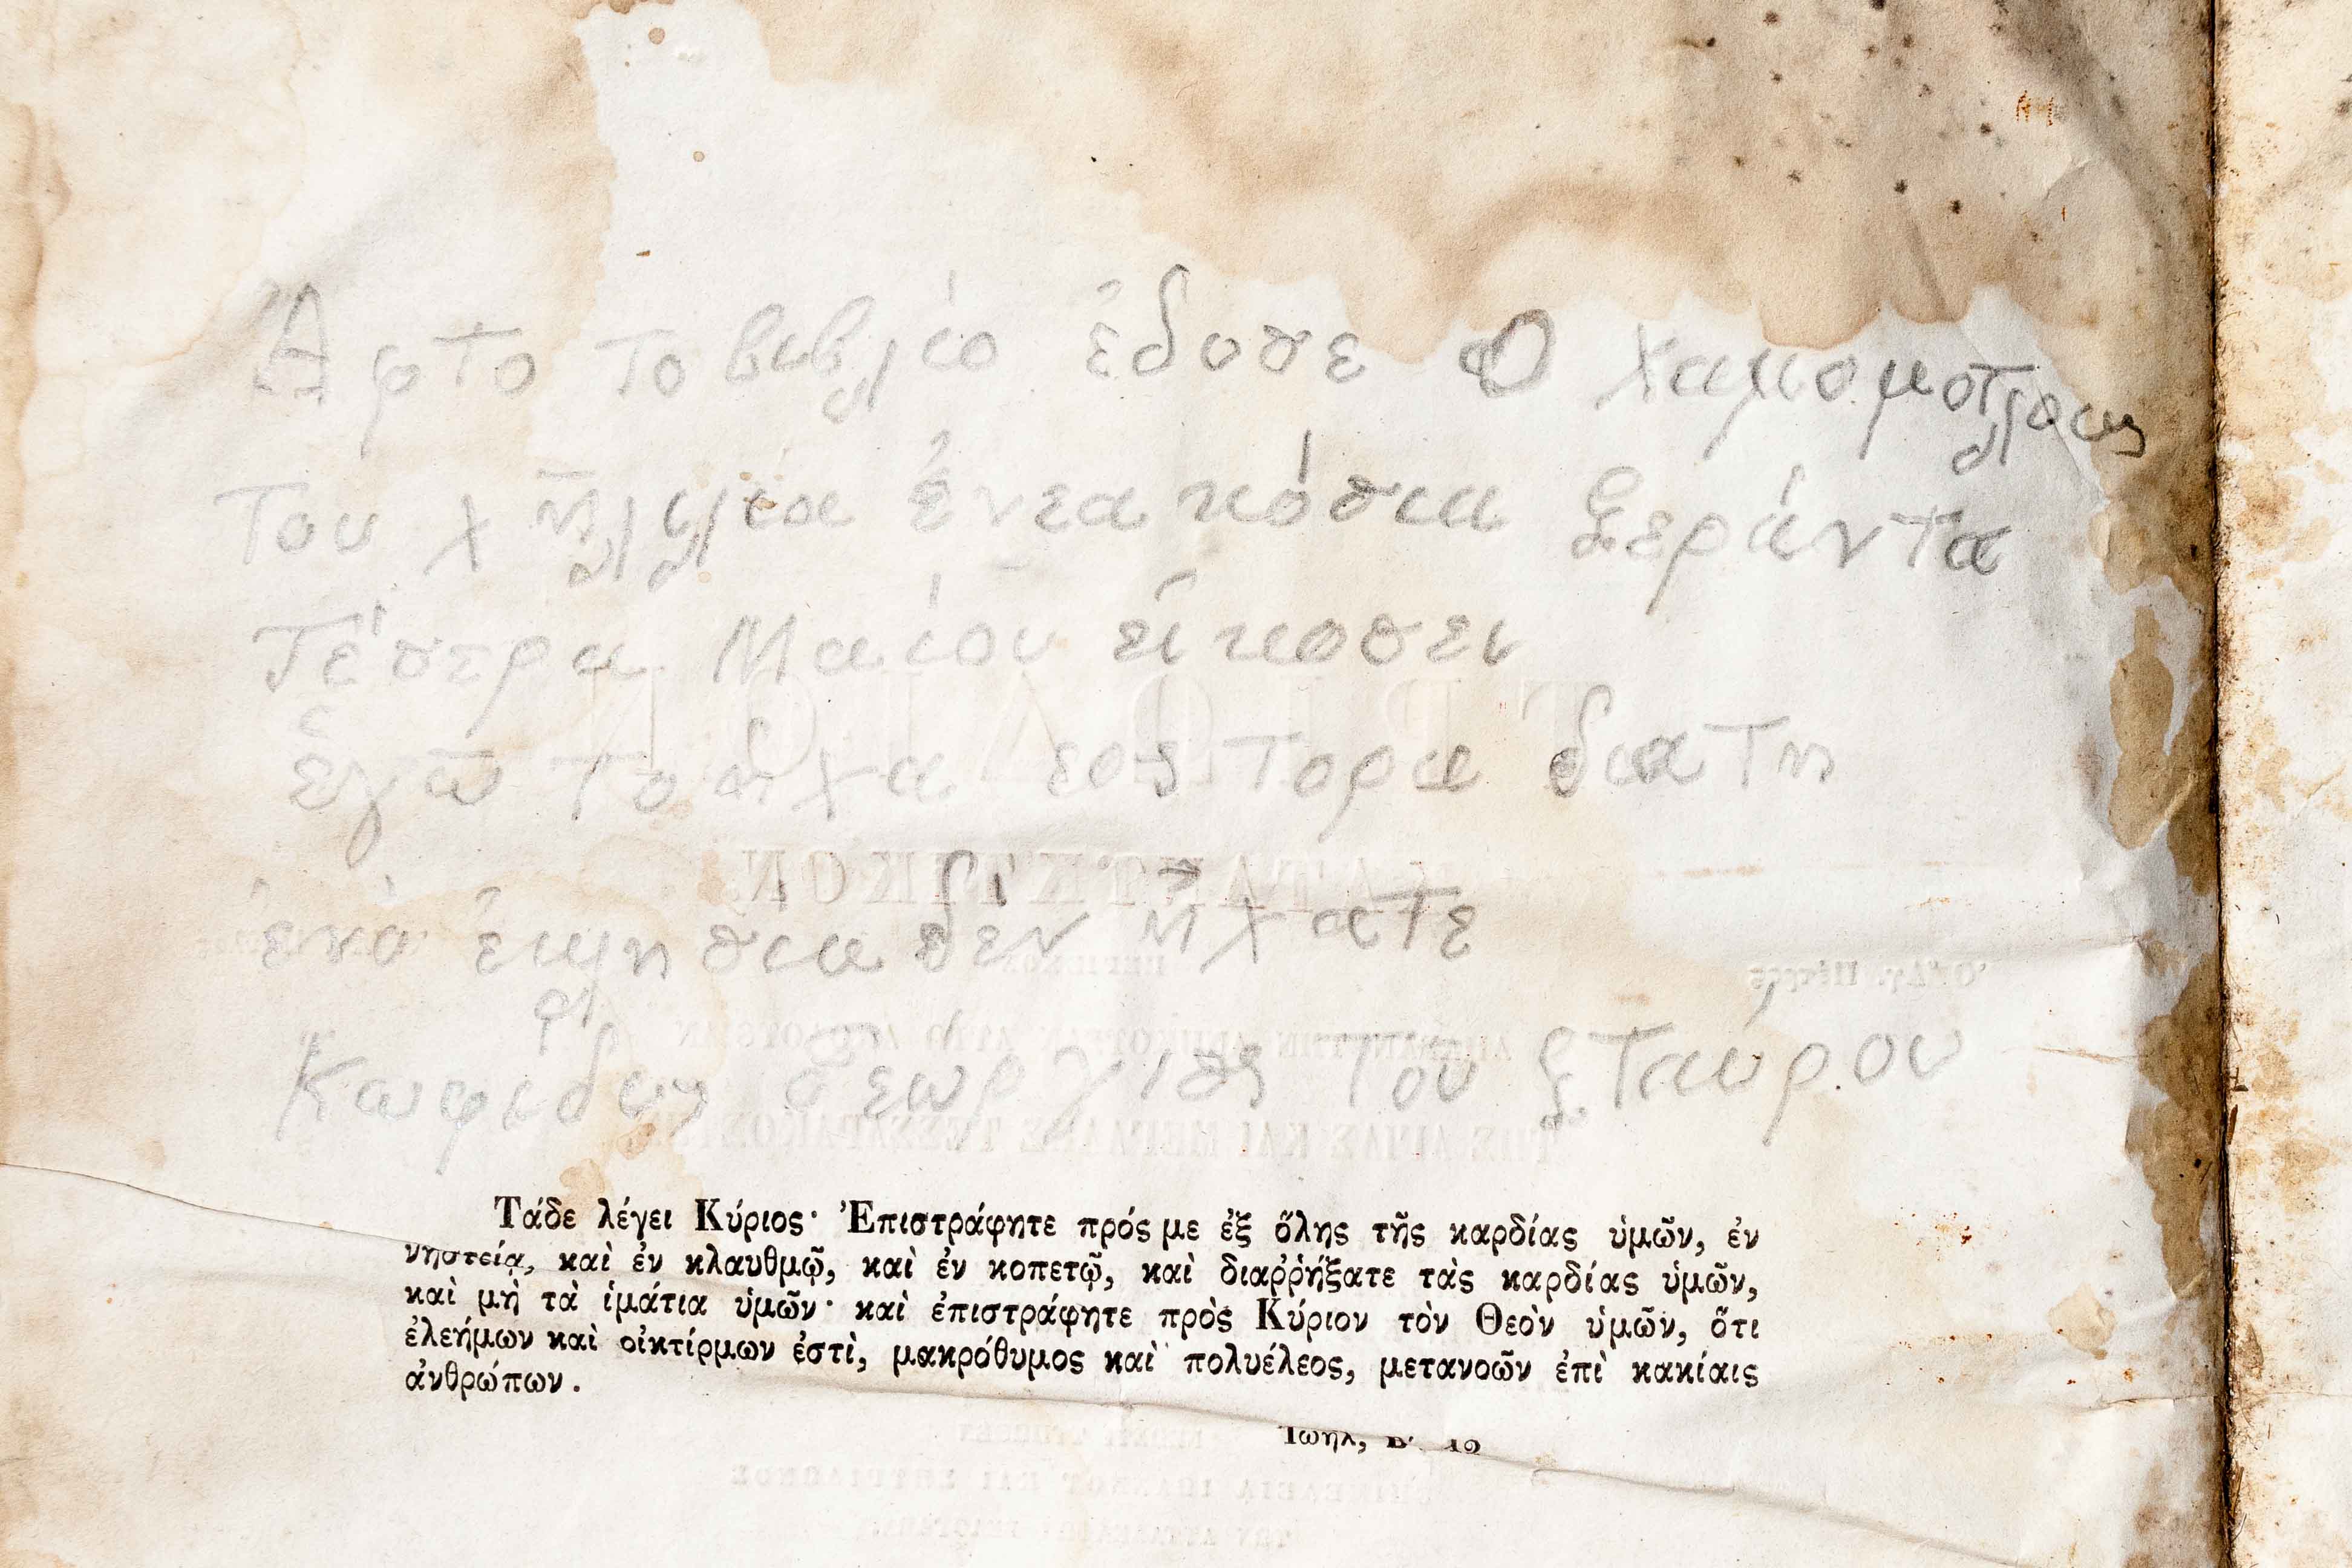 Ἀφτο το βιβλίο ἔδοσε Ὁ
του χῆλιλια ἐνεα κόσια ξεράντα
Τέσερα Μαίου εἴκοσει
ἐγῶ το ἦχα εος τορα διατη
ἐκό ἐκλησια δέν ἤχατε
Κωφιδης Γεωργιος Του Σταύρου
Τάδε λέγει Κύριος· Ἐπιστράφητε πρός με ἐξ ὅλης τῆς καρδίας ὑμῶν, ἐν
νηστείᾳ, καὶ ἐν κλαυθμῷ, καὶ ἐν κοπετῷ, καὶ διαῤῥήξατε τὰς καρδίας ὑμῶν,
καὶ μὴ τὰ ἱμάτια ὑμῶν· καὶ ἐπιστράφητε πρὸς Κύριον τὸν Θεὸν ὑμῶν, ὅτι
ἐλεήμων καὶ οἰκτίρμων ἐστὶ, μακρόθυμος καὶ πολυέλεος, μετανοῶν ἐπὶ κακίαις
ἀνθρώπων.
Ἰωήλ, Β΄. 12